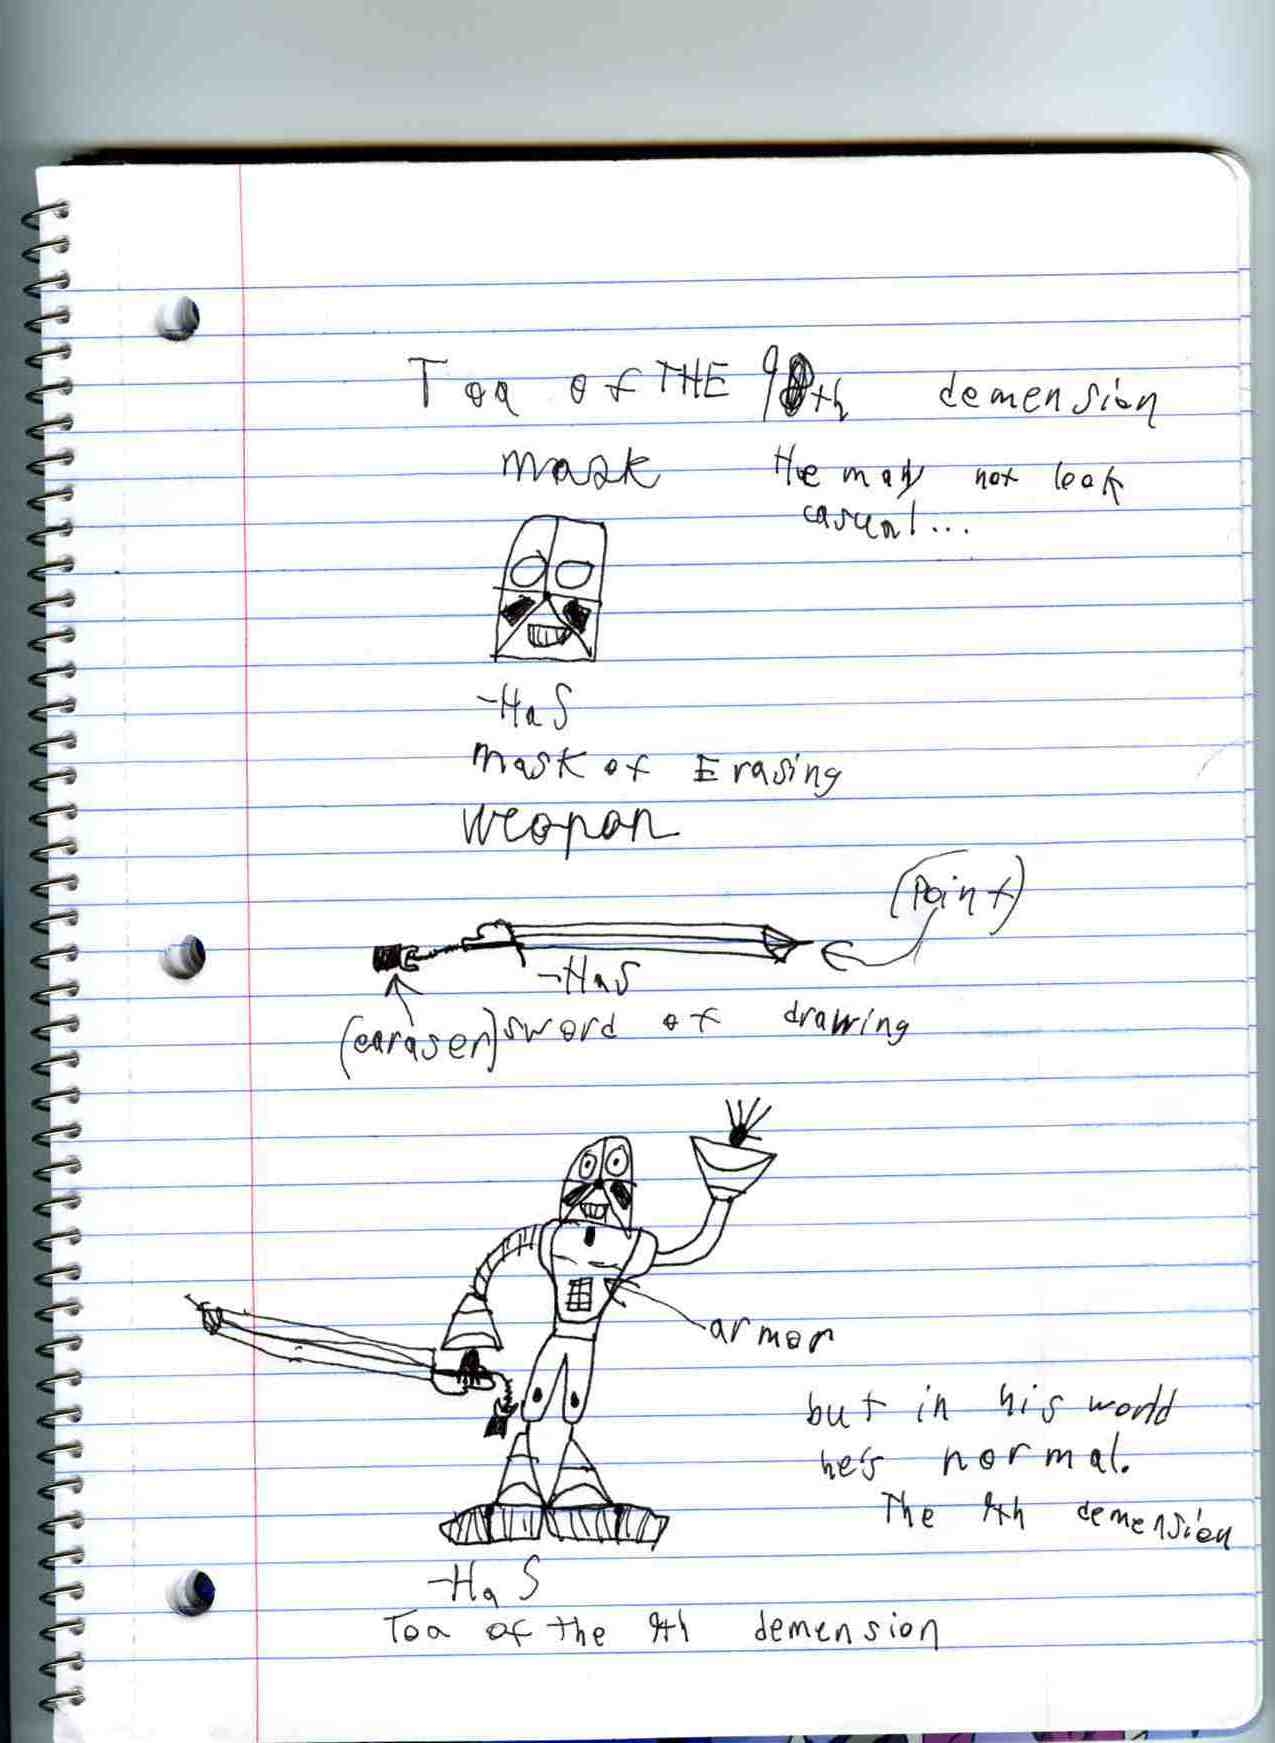 Toa of THE 9th demension
mask
He may not look
casual...
-HaS
mask of Erasing
weopon
(Point)
-HaS
(earaser)
sword of drawing
armor
but in his world
he's normal.
The 9th demension
-HaS
Toa of the 9th demension